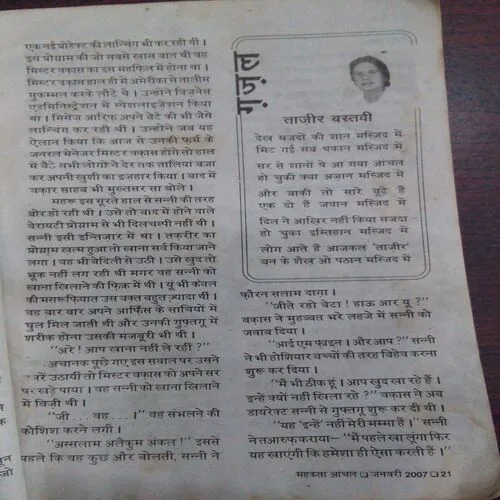 एक नई प्रोडक्ट की लान्चिंग भी कर रही थी।
इस प्रोग्राम की जो सबसे खास बात थी वह
मिस्टर वकास का इस महफिल में होना था।
मिस्टर वकास हाल ही में अमरीका से तालीम
मुकम्मल करके लौटे थे। उन्होंने बिज़नेस
एडमिनिस्ट्रेशन में स्पेशलाइजेशन किया
था। मिसेज़ आरिफ़ अपने बेटे की भी जैसे
लान्चिंग कर रही थी। उन्होंने जब यह
ऐलान किया कि आज से उनकी फर्म के
जनरल मेनेजर मिस्टर वकास होंगे तो हाल
में बैठे सभी लोगों ने देर तक तालिया बजा
कर अपनी खुशी का इजहार किया। बाद में
वकार साहब भी मुख्तसर सा बोले।
महरू इस सूरते हाल से सन्नी की तरह
बोर हो रही थी। उसे तो बाद में होने वाले
वेरायटी प्रोग्राम से भी दिलचस्पी नहीं थी।
सन्नी इसी इन्तिजार में था। तकरीर का
प्रोग्राम खत्म हुआ तो खाना सर्व किया जाने
लगा। वह भी बेदिली से उठी। उसे खुद तो
भूक नहीं लग रही थी मगर वह सन्नी को
खाना खिलाने की फ़िक्र में थी। यूं भी कंवल
की मसरूफ़ियात उस वक्त बहुत ज़्यादा थी।
वह बार बार अपने आर्फिस के साथियों में
घुल मिल जाती थी और उनकी गुफ्तगू में
शरीक होना उसकी मजबूरी भी थी।
“अरे! आप खाना नहीं ले रहीं?”
अचानक पूछे गए इस सवाल पर उसने
उठायीं तो मिस्टर वकास को अपने सर
पर खड़े पाया। वह सन्नी को खाना खिलाने
में विज़ी थी।
“जी.... वह....।” वह संभलने की
कोशिश करने लगी।
“अस्सलाम अलैकुम अंकल!” इससे
पहले कि वह कुछ और बोलती, सन्नी ने
ग़ज़ल
ताज़ीर बस्तवी
देख सजदों की शान मस्जिद में
मिट गई सब थकान मस्जिद में
सर से शानों पे आ गया आंचल
हो चुकी क्या अज़ान मस्जिद में
और बाकी तो सारे बूढ़े हैं
एक दो हैं जवान मस्जिद में
दिल ने आख़िर नहीं किया सजदा
हो चुका इम्तिहान मस्जिद में
लोग आते हैं आजकल 'ताज़ीर'
बन के शैख़ ओ पठान मस्जिद में
फौरन सलाम दागा।
“जीते रहो बेटा! हाऊ आर यू?”
वकास ने मुहब्बत भरे लहजे में सन्नी को
जवाब दिया।
“आई एम फ़ाइन। और आप?” सन्नी
ने भी होशियार बच्चों की तरह बिहेव करना
शुरू कर दिया।
“मैं भी ठीक हूं। आप खुद खा रहे हैं।
इन्हें क्यों नहीं खिला रहे?” वकास ने अब
डायरेक्ट सन्नी से गुफ्तगू शुरू कर दी थी।
“यह 'इन्हें' नहीं मेरी मम्मा हैं।” सन्नी
ने तआरूफ कराया- “मैं पहले खा लूंगा फिर
यह खाएंगी कि हमेशा ही ऐसा करती हैं।”
महकता आंचल □ जनवरी 2007 □ 21